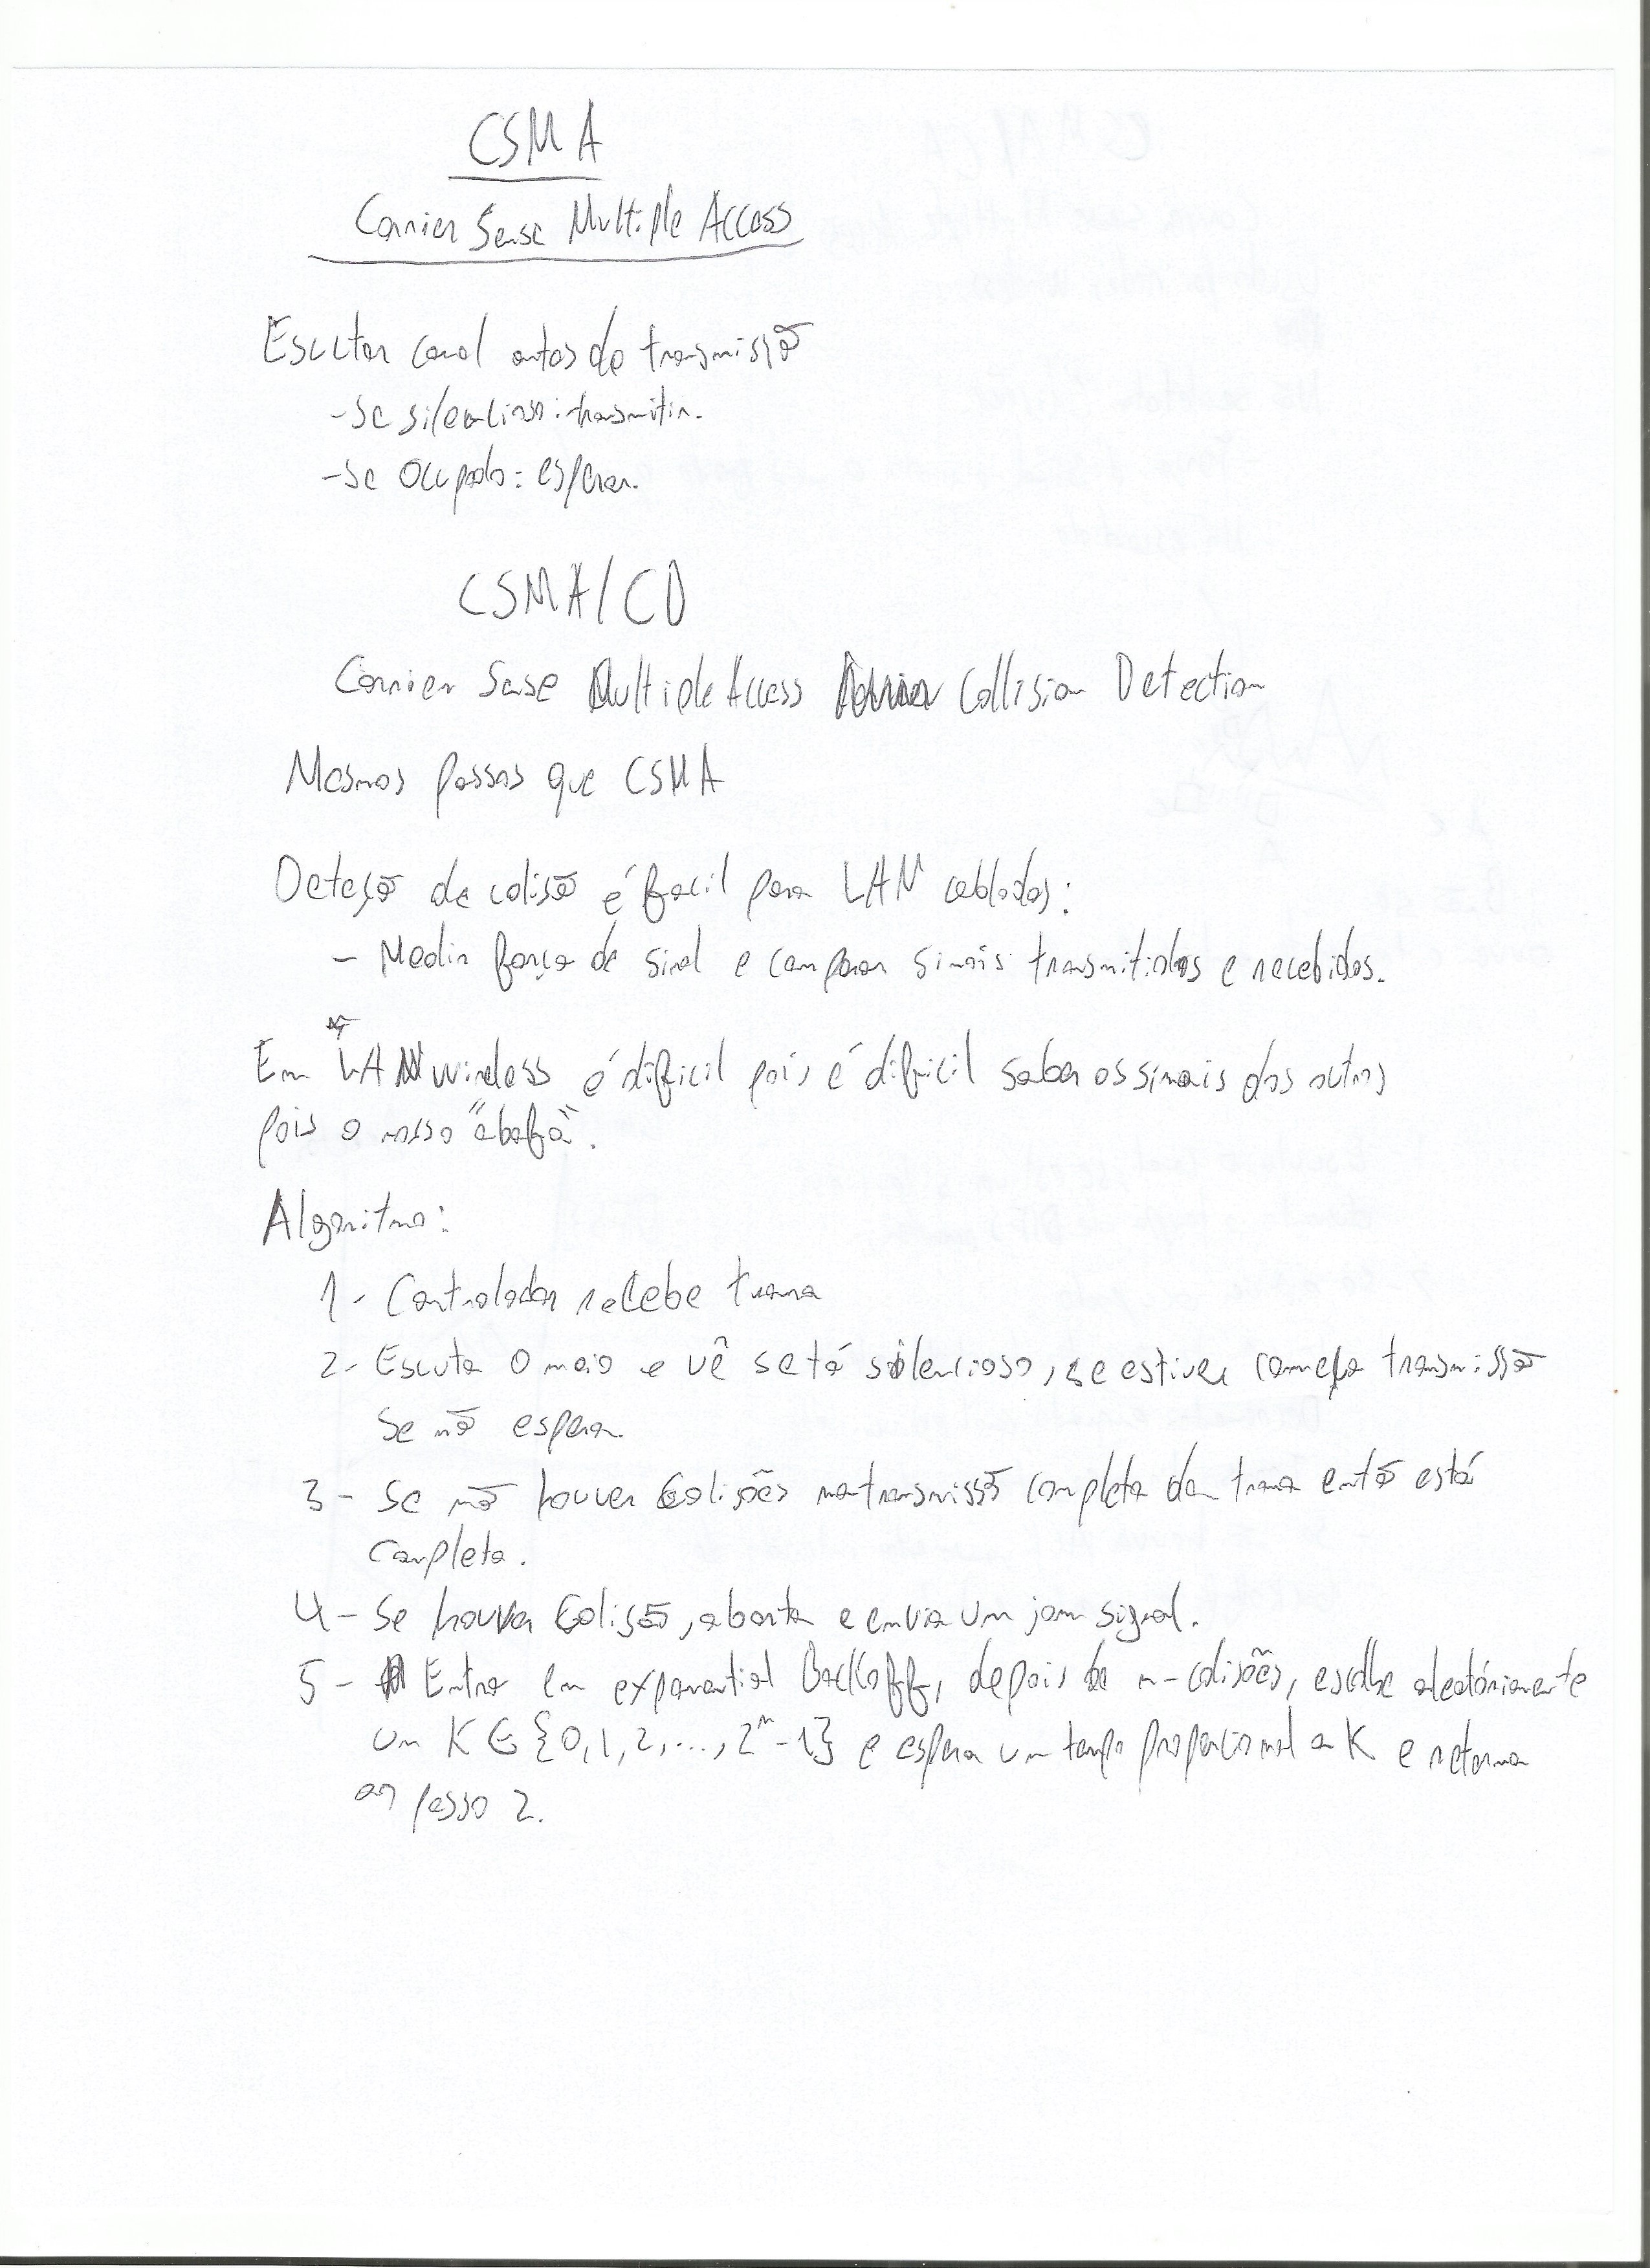 CSMA
Carrier Sense Multiple Access
Escutar canal antes de transmissão
-se silencioso: transmitir.
-se ocupado: esperar.
CSMA/CD
Carrier Sense Multiple Access Collision Detection
Mesmos passos que CSMA
Deteção de colisão é facil para LAN cablados:
- Medir força de sinal e comparar sinais transmitidos e recebidos.
Em LAN wireless é dificil pois é dificil saber os sinais dos outros
pois o nosso "abafa".
Algoritmo:
1- Controlador recebe trama
2- Escuta o meio e vê se tá silencioso, se estiver começa transmissão
se não espera.
3- Se não houver colisões na transmissão completa da trama então está
completa.
4- Se houver colisão, aborta e envia um jam signal.
5- Entra em exponential Backoff, depois de n-colisões, escolhe aleatóriamente
um K ∈ {0,1,2,...,2^n-1} e espera um tempo proporcional a K e retorna
ao passo 2.